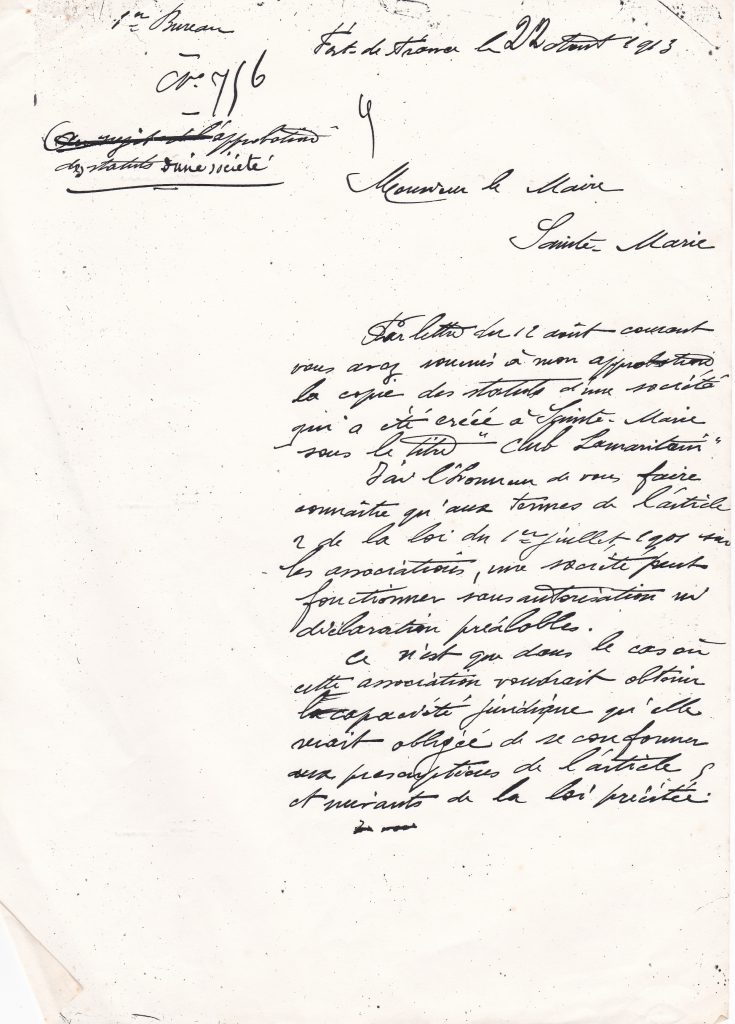 1er Bureau
Fort-de-France le 22 août 1913
No 756
(Au sujet de l'approbation
des statuts d'une société
Monsieur le Maire
Sainte-Marie
Par lettre du 12 août courant
vous avez soumis à mon approbation
la copie des statuts d'une société
qui a été créée à Sainte-Marie
sous le titre "Club Samaritain"
J'ai l'honneur de vous faire
connaître qu'aux termes de l'article
2 de la loi du 1er juillet 1901 sur
les associations, une société peut
fonctionner sans autorisation ni
déclaration préalables.
Ce n'est que dans le cas où
cette association voudrait obtenir
la capacité juridique qu'elle
serait obligée de se conformer
aux prescriptions de l'article 5
et suivants de la loi précitée.